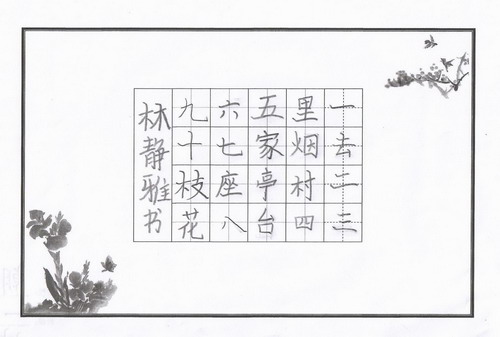 一去二三
里烟村四
五家亭台
六七座八
九十枝花
林静雅书